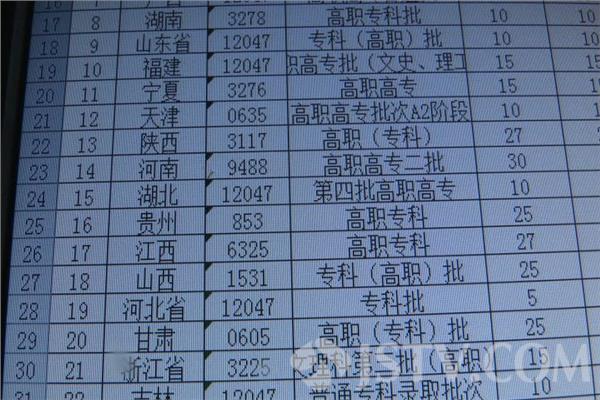 17 8 湖南 3278 高职专科批 10 10
18 9 山东省 12047 专科（高职）批 10 10
19 10 福建 12047 职高专批（文史、理工 15 15
20 11 宁夏 3276 高职高专 15 15
21 12 天津 0635 高职高专批次A2阶段 10 1
22 13 陕西 3117 高职（专科） 27 2
23 14 河南 9488 高职高专二批 30
24 15 湖北 12047 第四批高职高专 10
25 16 贵州 853 高职专科 25
26 17 江西 6325 高职专科 27
27 18 山西 1531 专科（高职）批 25
28 19 河北省 12047 专科批 5
29 20 甘肃 0605 高职（专科）批 25
30 21 浙江省 3225 文理科第三批（高职） 15
31 22 吉林 12047 普通专科录取批次 10
JSTV.COM